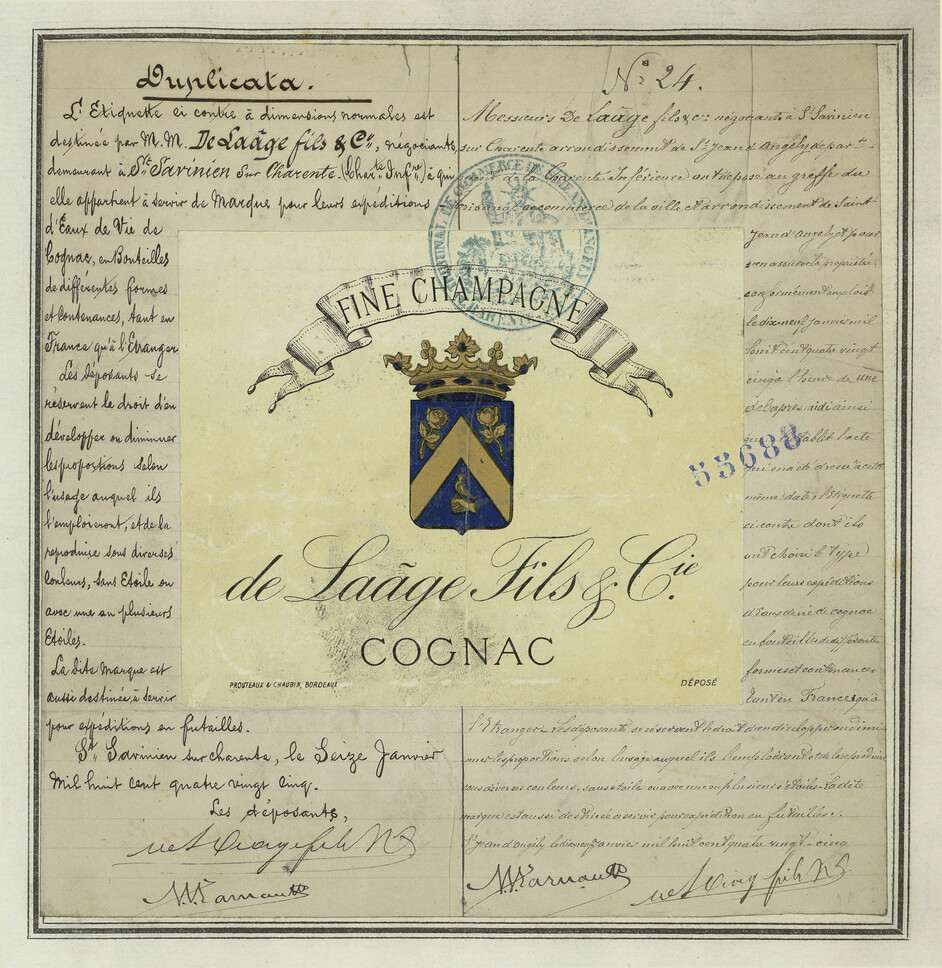 Duplicata.
L'Etiquette ci contre à dimensions normales est
destinée par M.M. De Laâge fils & Cie, négociants,
demeurant à St Savinien sur Charente. (Charte Infre) à qui
elle appartient à servir de Marque pour leurs expéditions
d'Eaux de Vie de
Cognac, en Bouteilles
de différentes formes
et Contenances, tant en
France qu'à l'Etranger
Les déposants se
réservent le droit d'en
développer ou diminuer
les proportions selon
l'usage auquel ils
l'emploieront, et de la
reproduire sous diverses
Couleurs, sans Etoile ou
avec une ou plusieurs
Etoiles.
La dite Marque est
aussi destinée à servir
pour expéditions en futailles.
St Savinien sur charente, le Seize Janvier
Mil huit cent quatre vingt cinq.
Les déposants,
No 24.
Messieurs De Laâge fils & Cie négociants à St Savinien
sur Charente arrondissement de St Jean d'Angely dépar-
de la Charente Inférieure ont déposé au greffe du
tribunal de commerce de la ville et arrondissement de Saint
Jean d'Angely et pour
s'en assurer la propriété
conformément aux lois
le dix-neuf janvier mil
huit cent quatre vingt
cinq à l'heure de une
de l'après midi ainsi
l'acte
qui en a été dressé à cette
même date, l'Etiquette
ci contre dont ils
ont choisi le type
pour leurs expéditions
d'Eaux de vie de cognac
en bouteilles de différentes
formes et contenances
tant en France qu'à
l'Etranger. Les déposants se réservent le droit d'en développer ou dimi
nuer les proportions selon l'usage auquel ils l'emploieront et de la reproduire
sous diverses couleurs, sans étoile ou avec une ou plusieurs étoiles. La dite
marque est aussi destinée à servir pour expédition en futailles.
St Jean d'Angély le dix-neuf janvier mil huit cent quatre vingt-cinq
FINE CHAMPAGNE
55688
de Laâge Fils & Cie.
COGNAC
PROUTEAUX & CHAUBIN, BORDEAUX
DÉPOSÉ